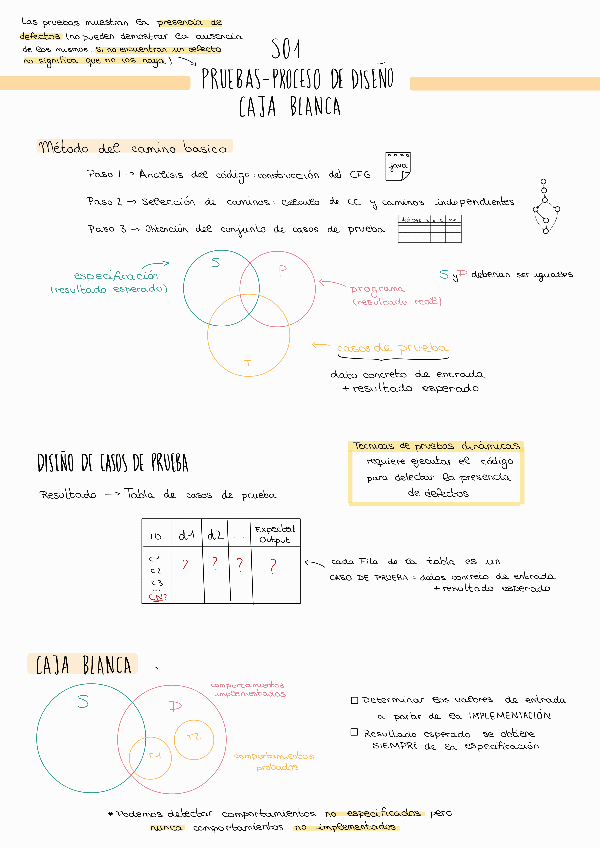 Las pruebas muestran la presencia de
defectos (no pueden demostrar la ausencia
de los mismos. Si no encuentran un defecto
no significa que no los haya)
S01
PRUEBAS-PROCESO DE DISEÑO
CAJA BLANCA
Método del camino basico
Paso 1 -> Análisis del código: construcción del CFG
java
Paso 2 -> Selección de caminos: calculo de CC y caminos independientes
Paso 3 -> Obtención del conjunto de casos de prueba
S
P
especificación
(resultado esperado)
S y P deberían ser iguales
programa
(resultado real)
casos de prueba
T
dato concreto de entrada
+ resultado esperado
Tecnicas de pruebas dinámicas
requiere ejecutar el código
para detectar la presencia
de defectos
DISEÑO DE CASOS DE PRUEBA
Resultado --> Tabla de casos de prueba
ID d1 d2 ... Expected Output
C1 ? ? ? ?
C2
C3
...
CN?
cada Fila de la tabla es un
CASO DE PRUEBA = datos concreto de entrada
+ resultado esperado
CAJA BLANCA
S
P
comportamientos
implementados
T1
T2
comportamientos
probados
Determinar los valores de entrada
a partir de la IMPLEMENTACIÓN
Resultado esperado se obtiene
SIEMPRE de la especificación
* Podemos detectar comportamientos no especificados pero
nunca comportamientos no implementados